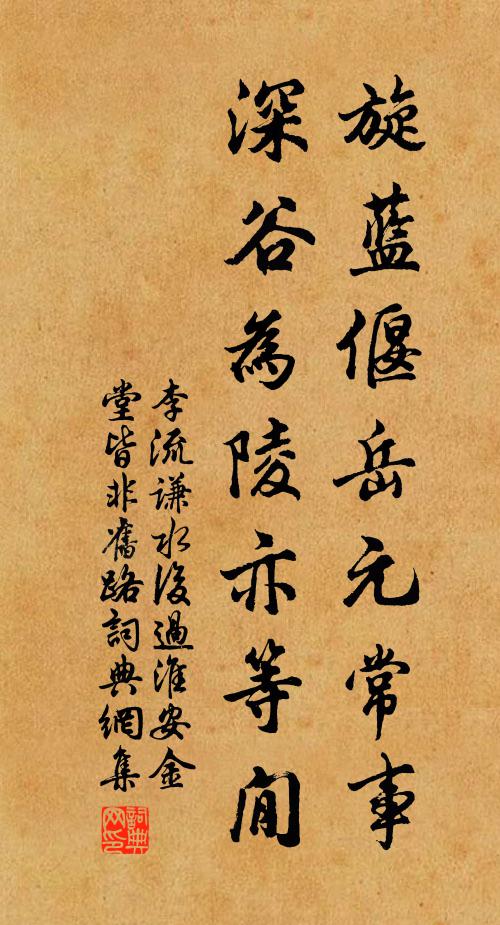 旋蓝偃岳元常事
深谷為陵亦等閒
李流谦水後過淮安金
堂皆非舊路詞典網集
詞典
网印